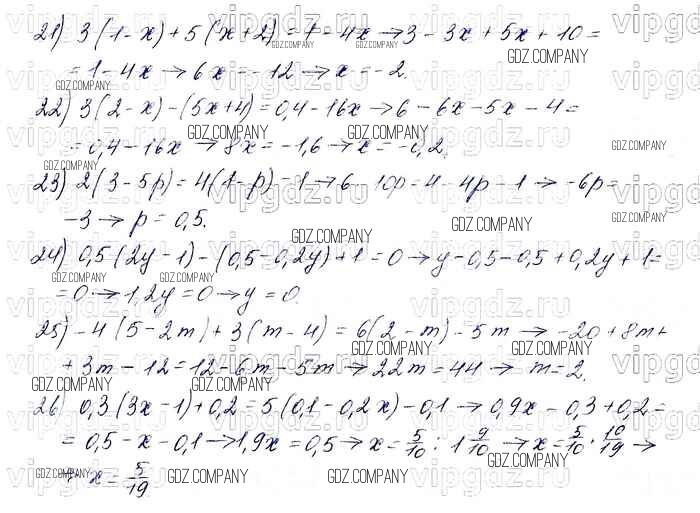 21) 3(1-x)+5(x+2)=1-4x→3-3x+5x+10=
=1-4x→6x=-12→x=-2.
22) 3(2-x)-(5x+4)=0,4-16x→6-6x-5x-4=
=0,4-16x→8x=-1,6→x=-0,2.
23) 2(3-5p)=4(1-p)-1→6-10p=4-4p-1→-6p=
-3→p=0,5.
24) 0,5(2y-1)-(0,5-0,2y)+1=0→y-0,5-0,5+0,2y+1=
=0→1,2y=0→y=0.
25) -4(5-2m)+3(m-4)=6(2-m)-5m→-20+8m+
+3m-12=12-6m-5m→22m=44→m=2.
26 0,3(3x-1)+0,2=5(0,1-0,2x)-0,1→0,9x-0,3+0,2=
=0,5-x-0,1→1,9x=0,5→x=5/10:1 9/10→x=5/10·10/19→
→x=5/19.